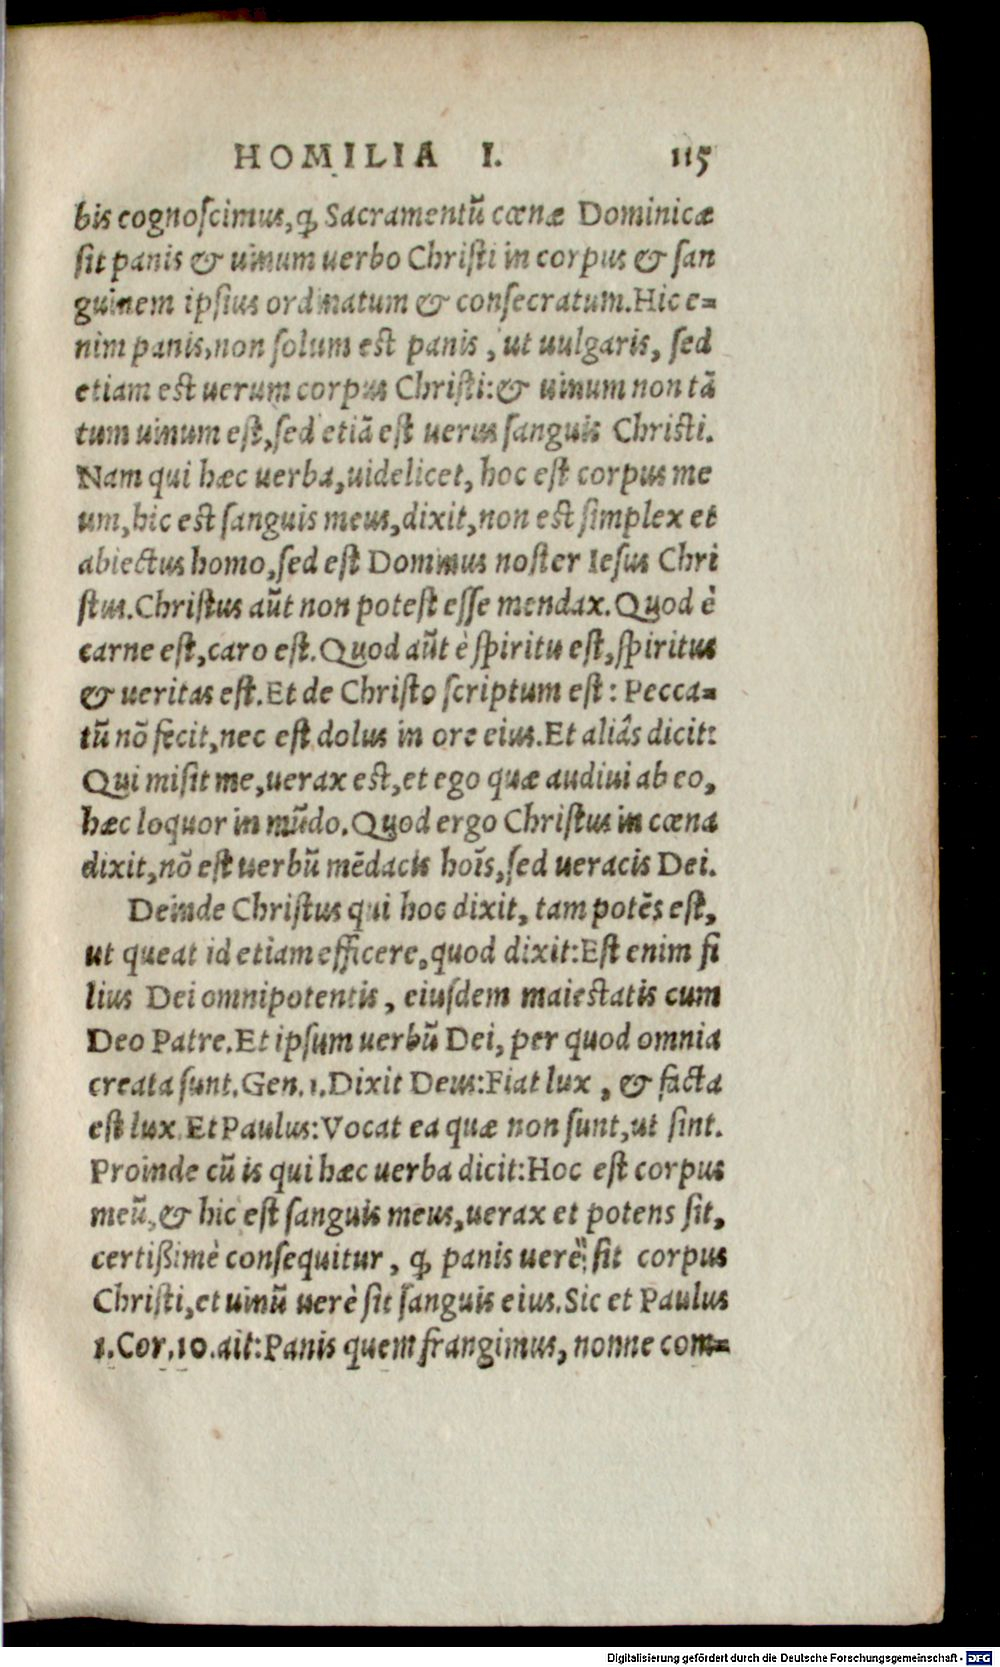 HOMILIA I. 115
bis cognoſcimus, ꝙ Sacramentũ cœnæ Dominicæ
ſit panis & uinum uerbo Chriſti in corpus & ſan
guinem ipſius ordinatum & conſecratum. Hic e-
nim panis, non ſolum est panis, ut uulgaris, ſed
etiam est uerum corpus Chriſti: & uinum non tã
tum uinum eſt, ſed etiã eſt uerus ſanguis Chriſti.
Nam qui hæc uerba, uidelicet, hoc eſt corpus me
um, hic est ſanguis meus, dixit, non est ſimplex et
abiectus homo, ſed eſt Dominus noſter Ieſus Chri
ſtus. Chriſtus aũt non poteſt eſſe mendax. Quod è
carne eſt, caro eſt. Quod aũt è ſpiritu eſt, ſpiritus
& ueritas eſt. Et de Chriſto ſcriptum eſt: Pecca-
tũ nõ fecit, nec eſt dolus in ore eius. Et aliâs dicit:
Qui miſit me, uerax eſt, et ego quæ audiui ab eo,
hæc loquor in mũdo. Quod ergo Chriſtus in cœna
dixit, nõ eſt uerbũ mẽdacis hoĩs, ſed ueracis Dei.
Deinde Chriſtus qui hoc dixit, tam potẽs eſt,
ut queat id etiam efficere, quod dixit: Eſt enim fi
lius Dei omnipotentis, eiuſdem maiestatis cum
Deo Patre. Et ipſum uerbũ Dei, per quod omnia
creata ſunt. Gen. 1. Dixit Deus: Fiat lux, & facta
eſt lux. Et Paulus: Vocat ea quæ non ſunt, ut ſint.
Proinde cũ is qui hæc uerba dicit: Hoc eſt corpus
meũ, & hic eſt ſanguis meus, uerax et potens ſit,
certißimè conſequitur, ꝙ panis uerè ſit corpus
Chriſti, et uinũ uerè ſit ſanguis eius. Sic et Paulus
1. Cor. 10. ait: Panis quem frangimus, nonne com-
Digitalisierung gefördert durch die Deutsche Forschungsgemeinschaft - DFG